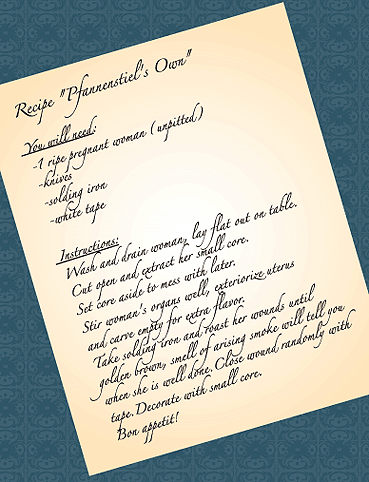 Recipe "Pfannenstiel's Own"
You will need:
-1 ripe pregnant woman (unpitted)
-knives
-solding iron
-white tape
Instructions:
Wash and drain woman, lay flat out on table.
Cut open and extract her small core.
Set core aside to mess with later.
Stir woman's organs well, exteriorize uterus
and carve empty for extra flavor.
Take solding iron and roast her wounds until
golden brown, smell of arising smoke will tell you
when she is well done. Close wound randomly with
tape. Decorate with small core.
Bon appetit!